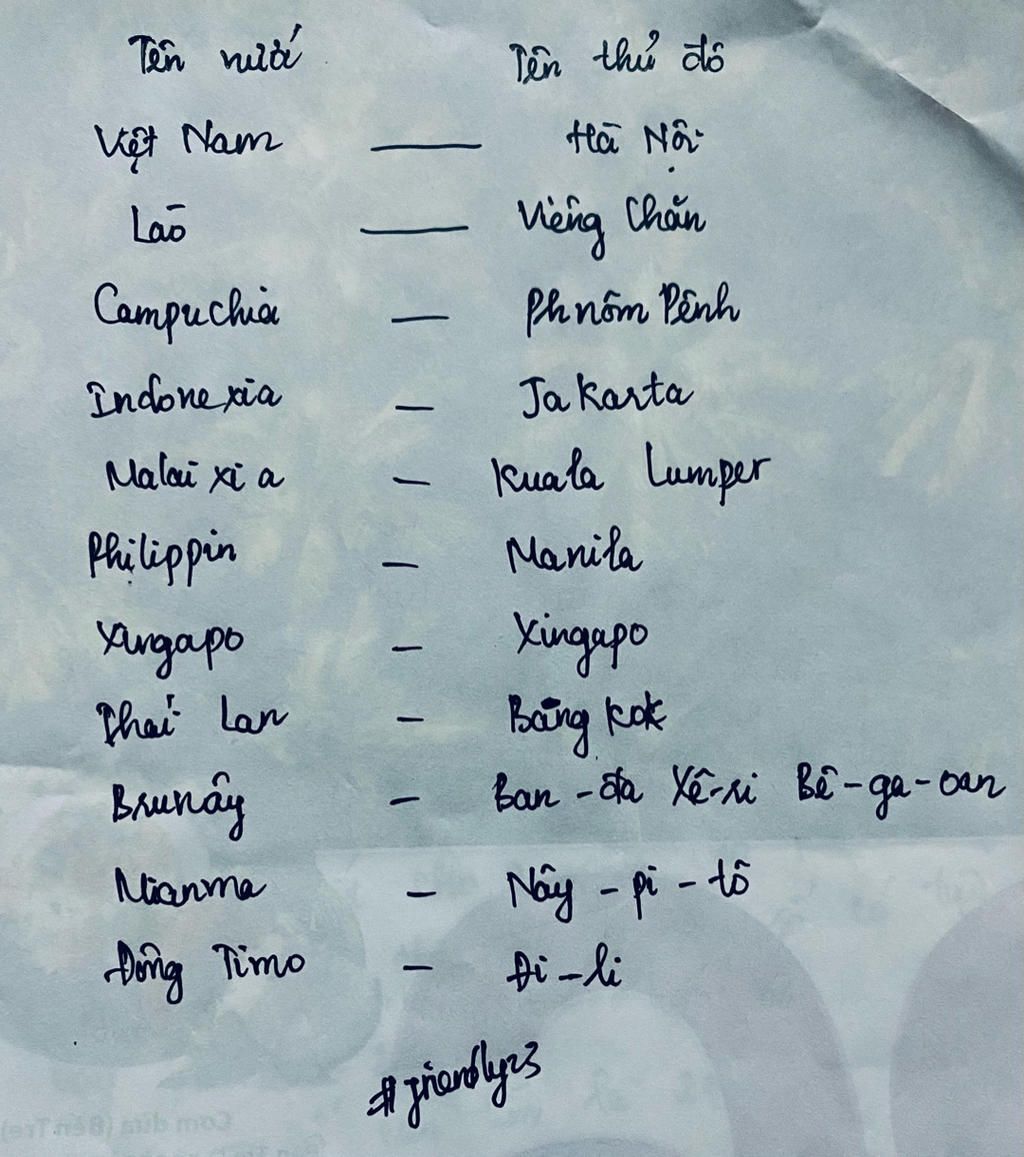 Tên nước Tên thủ đô
Việt Nam — Hà Nội
Lào — Viêng Chăn
Campuchia — Phnôm Pênh
Indonexia — Jakarta
Malai xi a — Kuala Lumper
Philippin — Manila
Xingapo — Xingapo
Thái Lan — Băng kok
Brunây — Ban - đa Xê-ri Bê - ga - oan
Mianma — Nây - pi - tô
Đông Timo — Đi - li
#friendly23
Cơm dừa (Bến Tre)